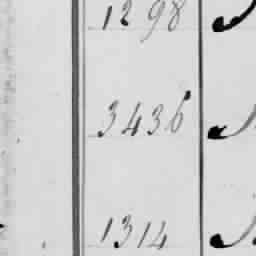 1298
3436
1314